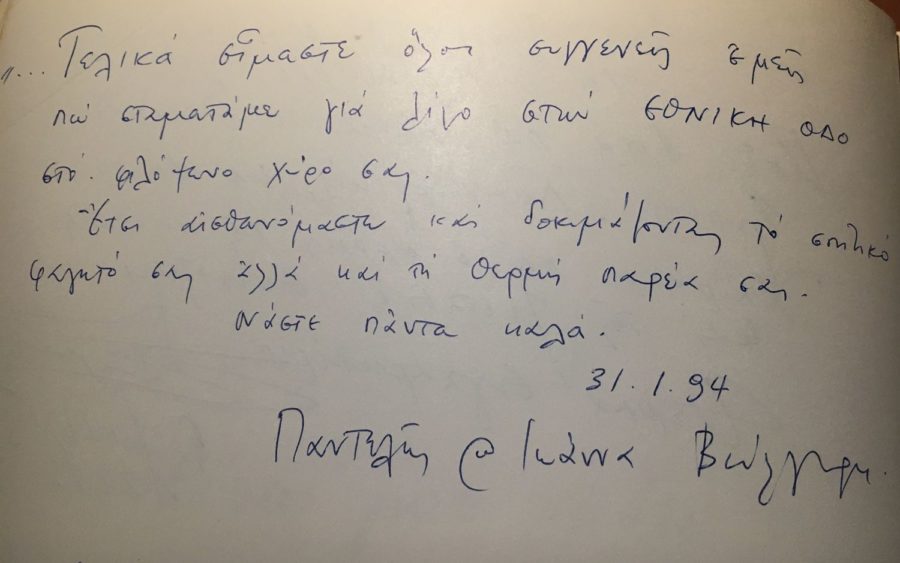 „... Τελικά εἴμαστε ὅλοι συγγενεῖς ἐμεῖς
πού σταματᾶμε γιά λίγο στήν ΕΘΝΙΚΗ ΟΔΟ
στό φιλόξενο χῶρο σας.
Ἔτσι αἰσθανόμαστε καί δοκιμάζοντας τό σπιτικό
φαγητό σας ἀλλά καί τή θερμή παρέα σας.
Νἆστε πάντα καλά.
31.1.94
Παντελής @ Ιωάννα Βούλγαρη.